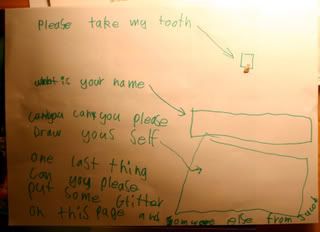 Please take my tooth
what is your name
can you can you please
Draw yous self
one last thing
can you please
put some Glitter
on this page and someone else from